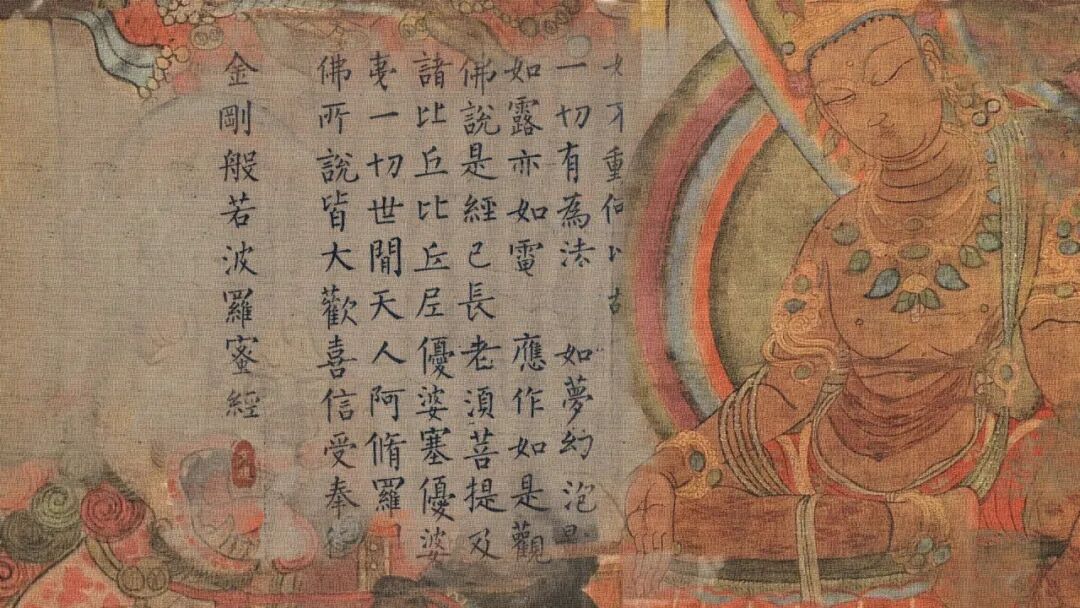 一切有為法 如夢幻泡
如露亦如電 應作如是觀
佛說是經已長老須菩提及
諸比丘比丘尼優婆塞優婆
夷一切世間天人阿脩羅
佛所說皆大歡喜信受奉
金剛般若波羅蜜經